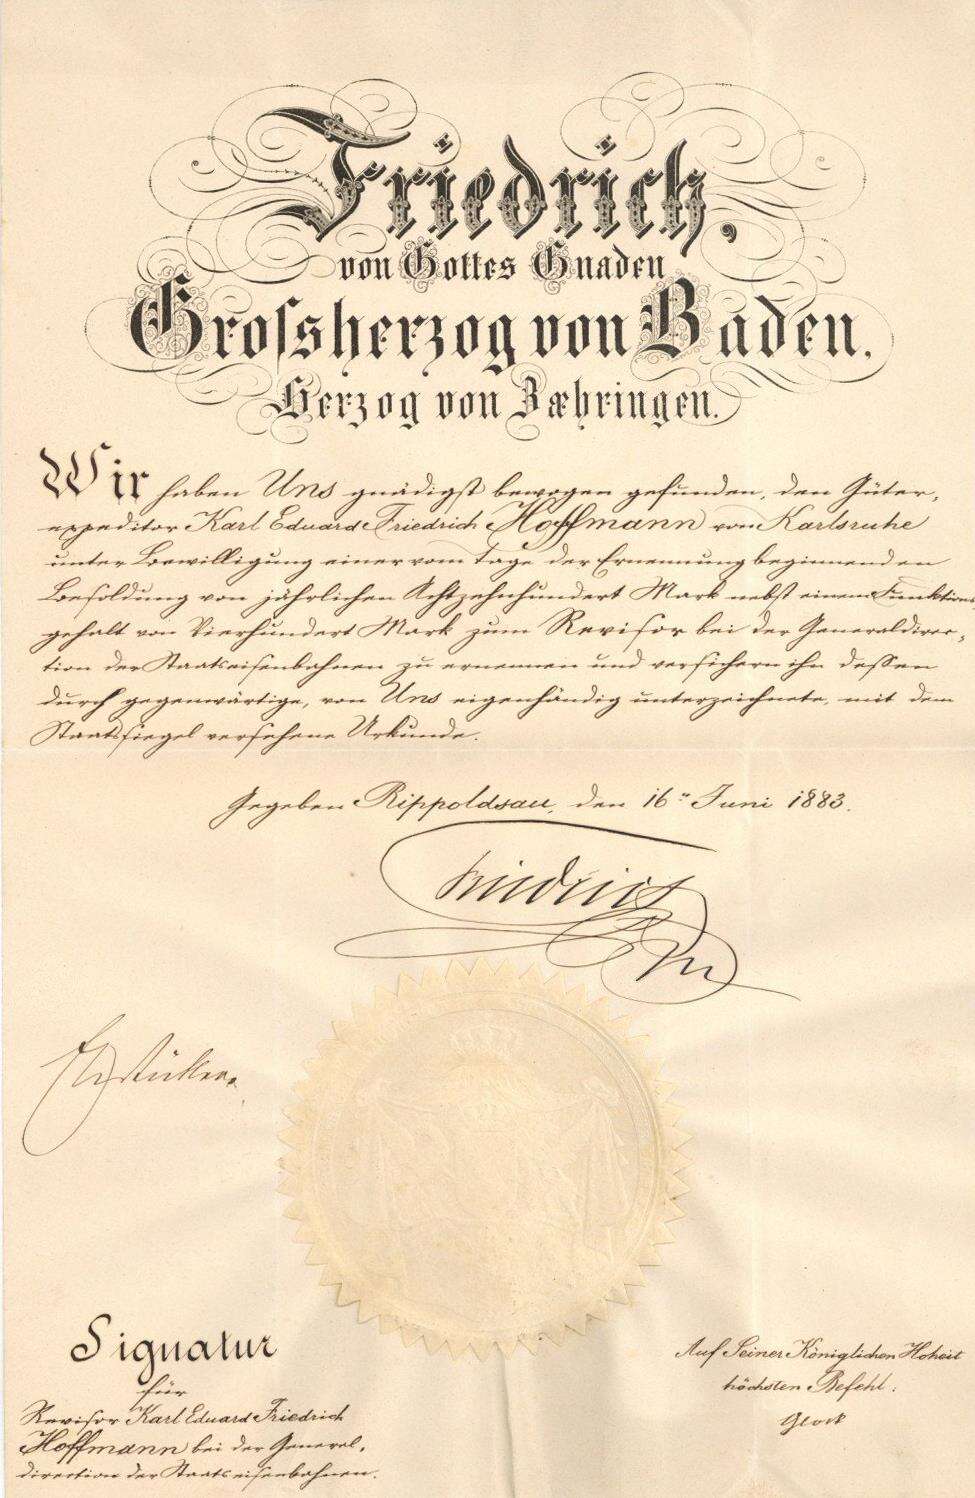 Friedrich,
von Gottes Gnaden
Grossherzog von Baden,
Herzog von Zæhringen.
Wir haben Uns gnädigst bewogen gefunden, den Güter-
expeditor Karl Eduard Friedrich Hoffmann von Karlsruhe
unter Bewilligung einer vom Tage der Ernennung beginnenden
Besoldung von jährlichen Achtzehnhundert Mark nebst einem Funktions-
gehalt von Vierhundert Mark zum Revisor bei der Generaldirec-
tion der Staatseisenbahnen zu ernennen und versichern ihn dessen
durch gegenwärtige, von Uns eigenhändig unterzeichnete, mit dem
Staatssiegel versehene Urkunde.
Gegeben Rippoldsau, den 16ⁿ Juni 1883.
Friedrich
Signatur
für
Revisor Karl Eduard Friedrich
Hoffmann bei der General-
direction der Staatseisenbahnen.
Auf Seiner Königlichen Hoheit
höchsten Befehl:
Glock